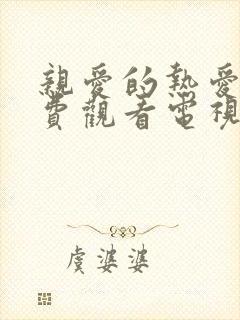 親愛的熱愛
費觀看電視
虞婆婆